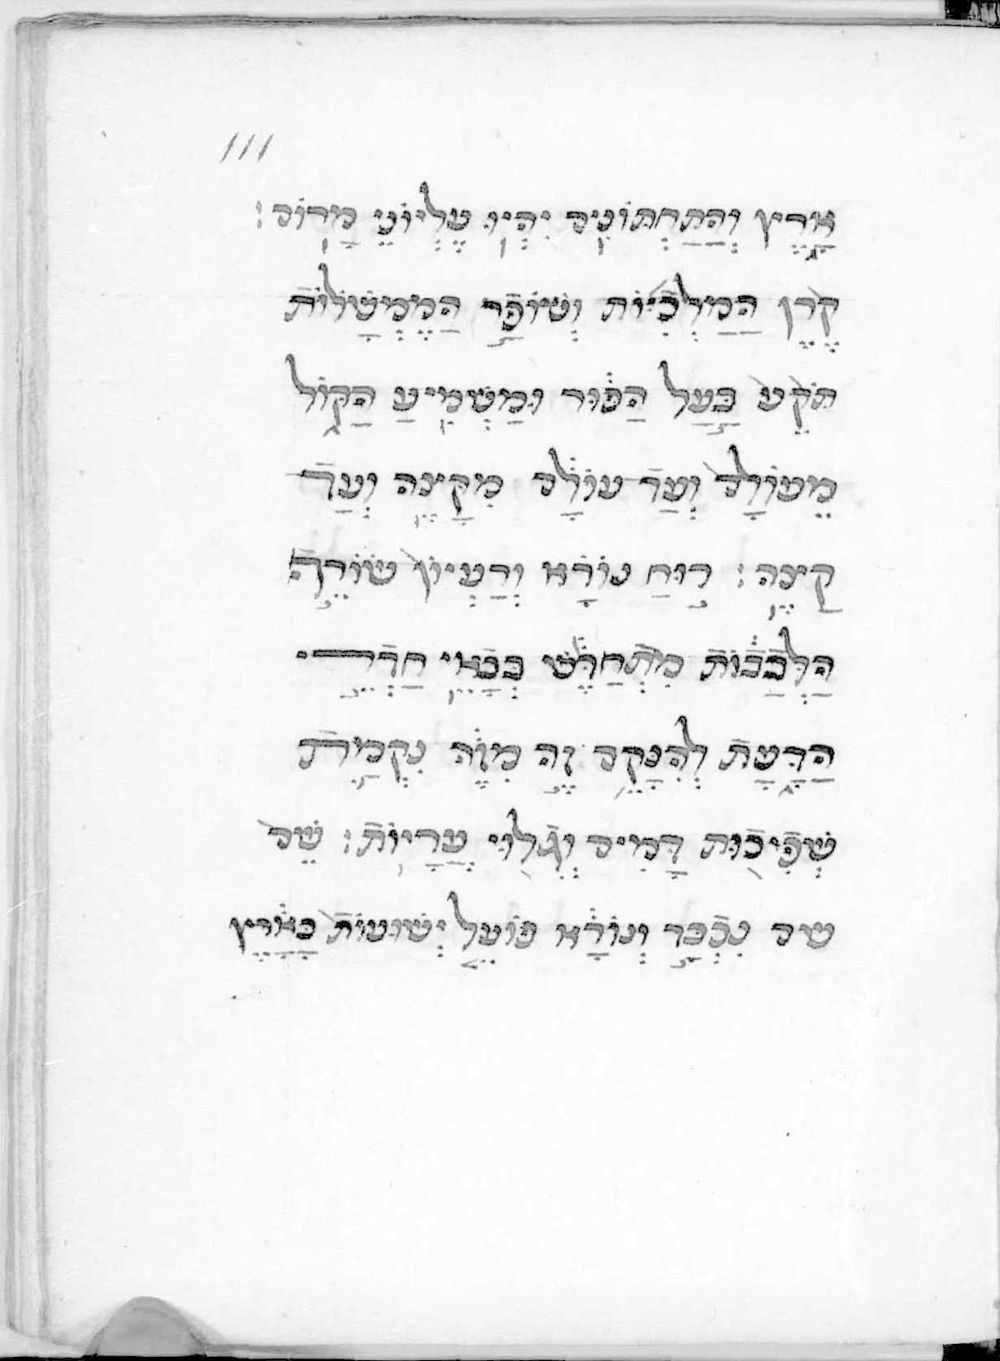 111
אָרֶץ וְהַתַּחְתּוֹנִים יִהְיוּ עֶלְיוֹנֵי מָרוֹם׃
קֶרֶן הַמַלְכֿיּוֹת וְשׁוֹפַֿר הַמֶמְשָׁלוֹתֿ
תֹקֵע בַּעַל הַפּוּר וּמַשְׁמִיעַ הַקּוֹל
מֵעוֹלָם וְעַדֿ עוֹלָם מִקָּצֶה וְעַדֿ
קָצֶה׃ רוּחַ נוֹרָא וְרַעְיוֹן שׂוֹרֵףֿ
הַלְּבָֿבֿוֹתֿ מִתְֿחַדֵּשׁ בְּבָֿאֵי חַדְֿרֵי
הַדָּעַתֿ לְהִנָּקֵם זֶה מִזֶּה נִקְמַתֿ
שְׁפִֿיכֿוּת דָּמִים וְגִֿלוּי עֲרָיוֹתֿ׃ שֵׁם
שם נִכְֿבָּד וְנוֹרָא פּוֹעֵל יְשׁוּעוֹתֿ בָּאָרֶץ